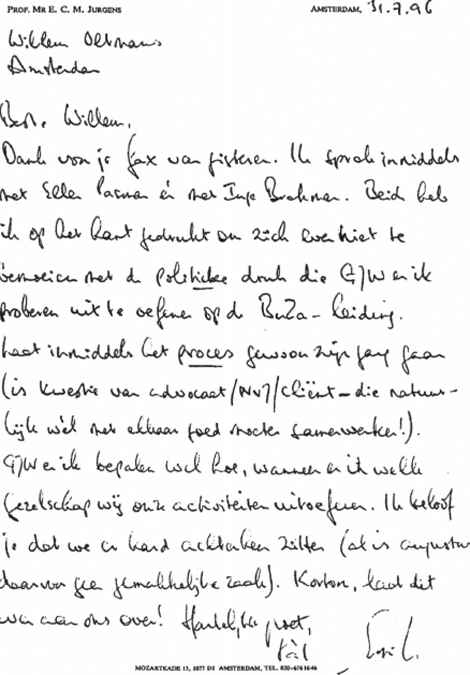 PROF. MR E. C. M. JURGENS AMSTERDAM, 31.7.96
Willem Oltmans
Amsterdam
Beste Willem,
Dank voor je fax van gisteren. Ik sprak inmiddels
met Ellen Pasman èn met Inge Brakman. Beide heb
ik op het hart gedrukt om zich even niet te
bemoeien met de politieke druk die GJW en ik
proberen uit te oefenen op de BuZa-leiding.
Laat inmiddels het proces gewoon zijn gang gaan
(is kwestie van advocaat/NVJ/cliënt - die natuur-
lijk wèl met elkaar goed moeten samenwerken!).
GJW en ik bepalen wel hoe, wanneer en in welk
gezelschap wij onze activiteiten uitoefenen. Ik beloof
je dat we er hard achteraan zitten (al is augustus
daarvoor geen gemakkelijke zaak). Kortom, laat dit
aan ons over! Hartelijke groet,
Erik J.
MOZARTKADE 13, 1077 DJ AMSTERDAM, TEL. 020-6761646